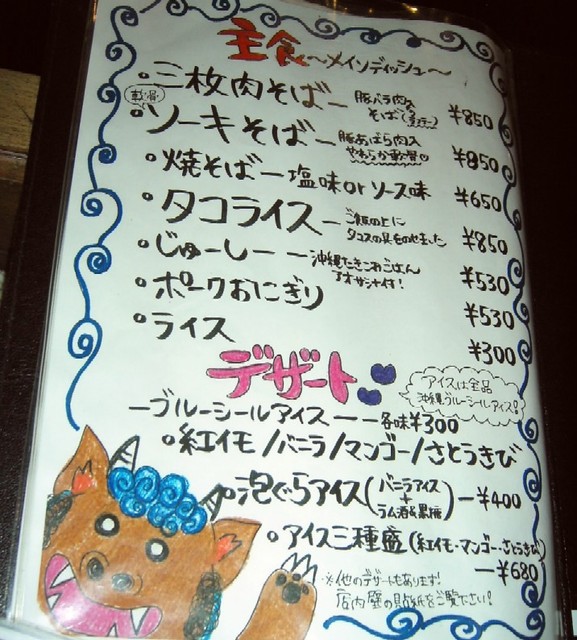 主食～メインディッシュ～
・三枚肉そば— 豚バラ肉入 ¥850
軟骨
・ソーキそば— 豚あばら肉入 やわらか軟骨♡ ¥850
・焼そば—塩味orソース味 ¥650
・タコライス—ご飯の上に タコスの具をのせました ¥850
・じゅーしー—沖縄たきこみごはん アオサ汁付! ¥530
・ポークおにぎり ¥530
・ライス ¥300
デザート
アイスは全品
沖縄ブルーシールアイス!
—ブルーシールアイス——各味¥300
・紅イモ/バニラ/マンゴー/さとうきび
・泡ぐらアイス(バニラアイス+ラム酒&黒糖)—¥400
・アイス三種盛(紅イモ・マンゴー・さとうきび)
—¥680
※他のデザートもあります!
店内壁の貼紙をご覧下さい!